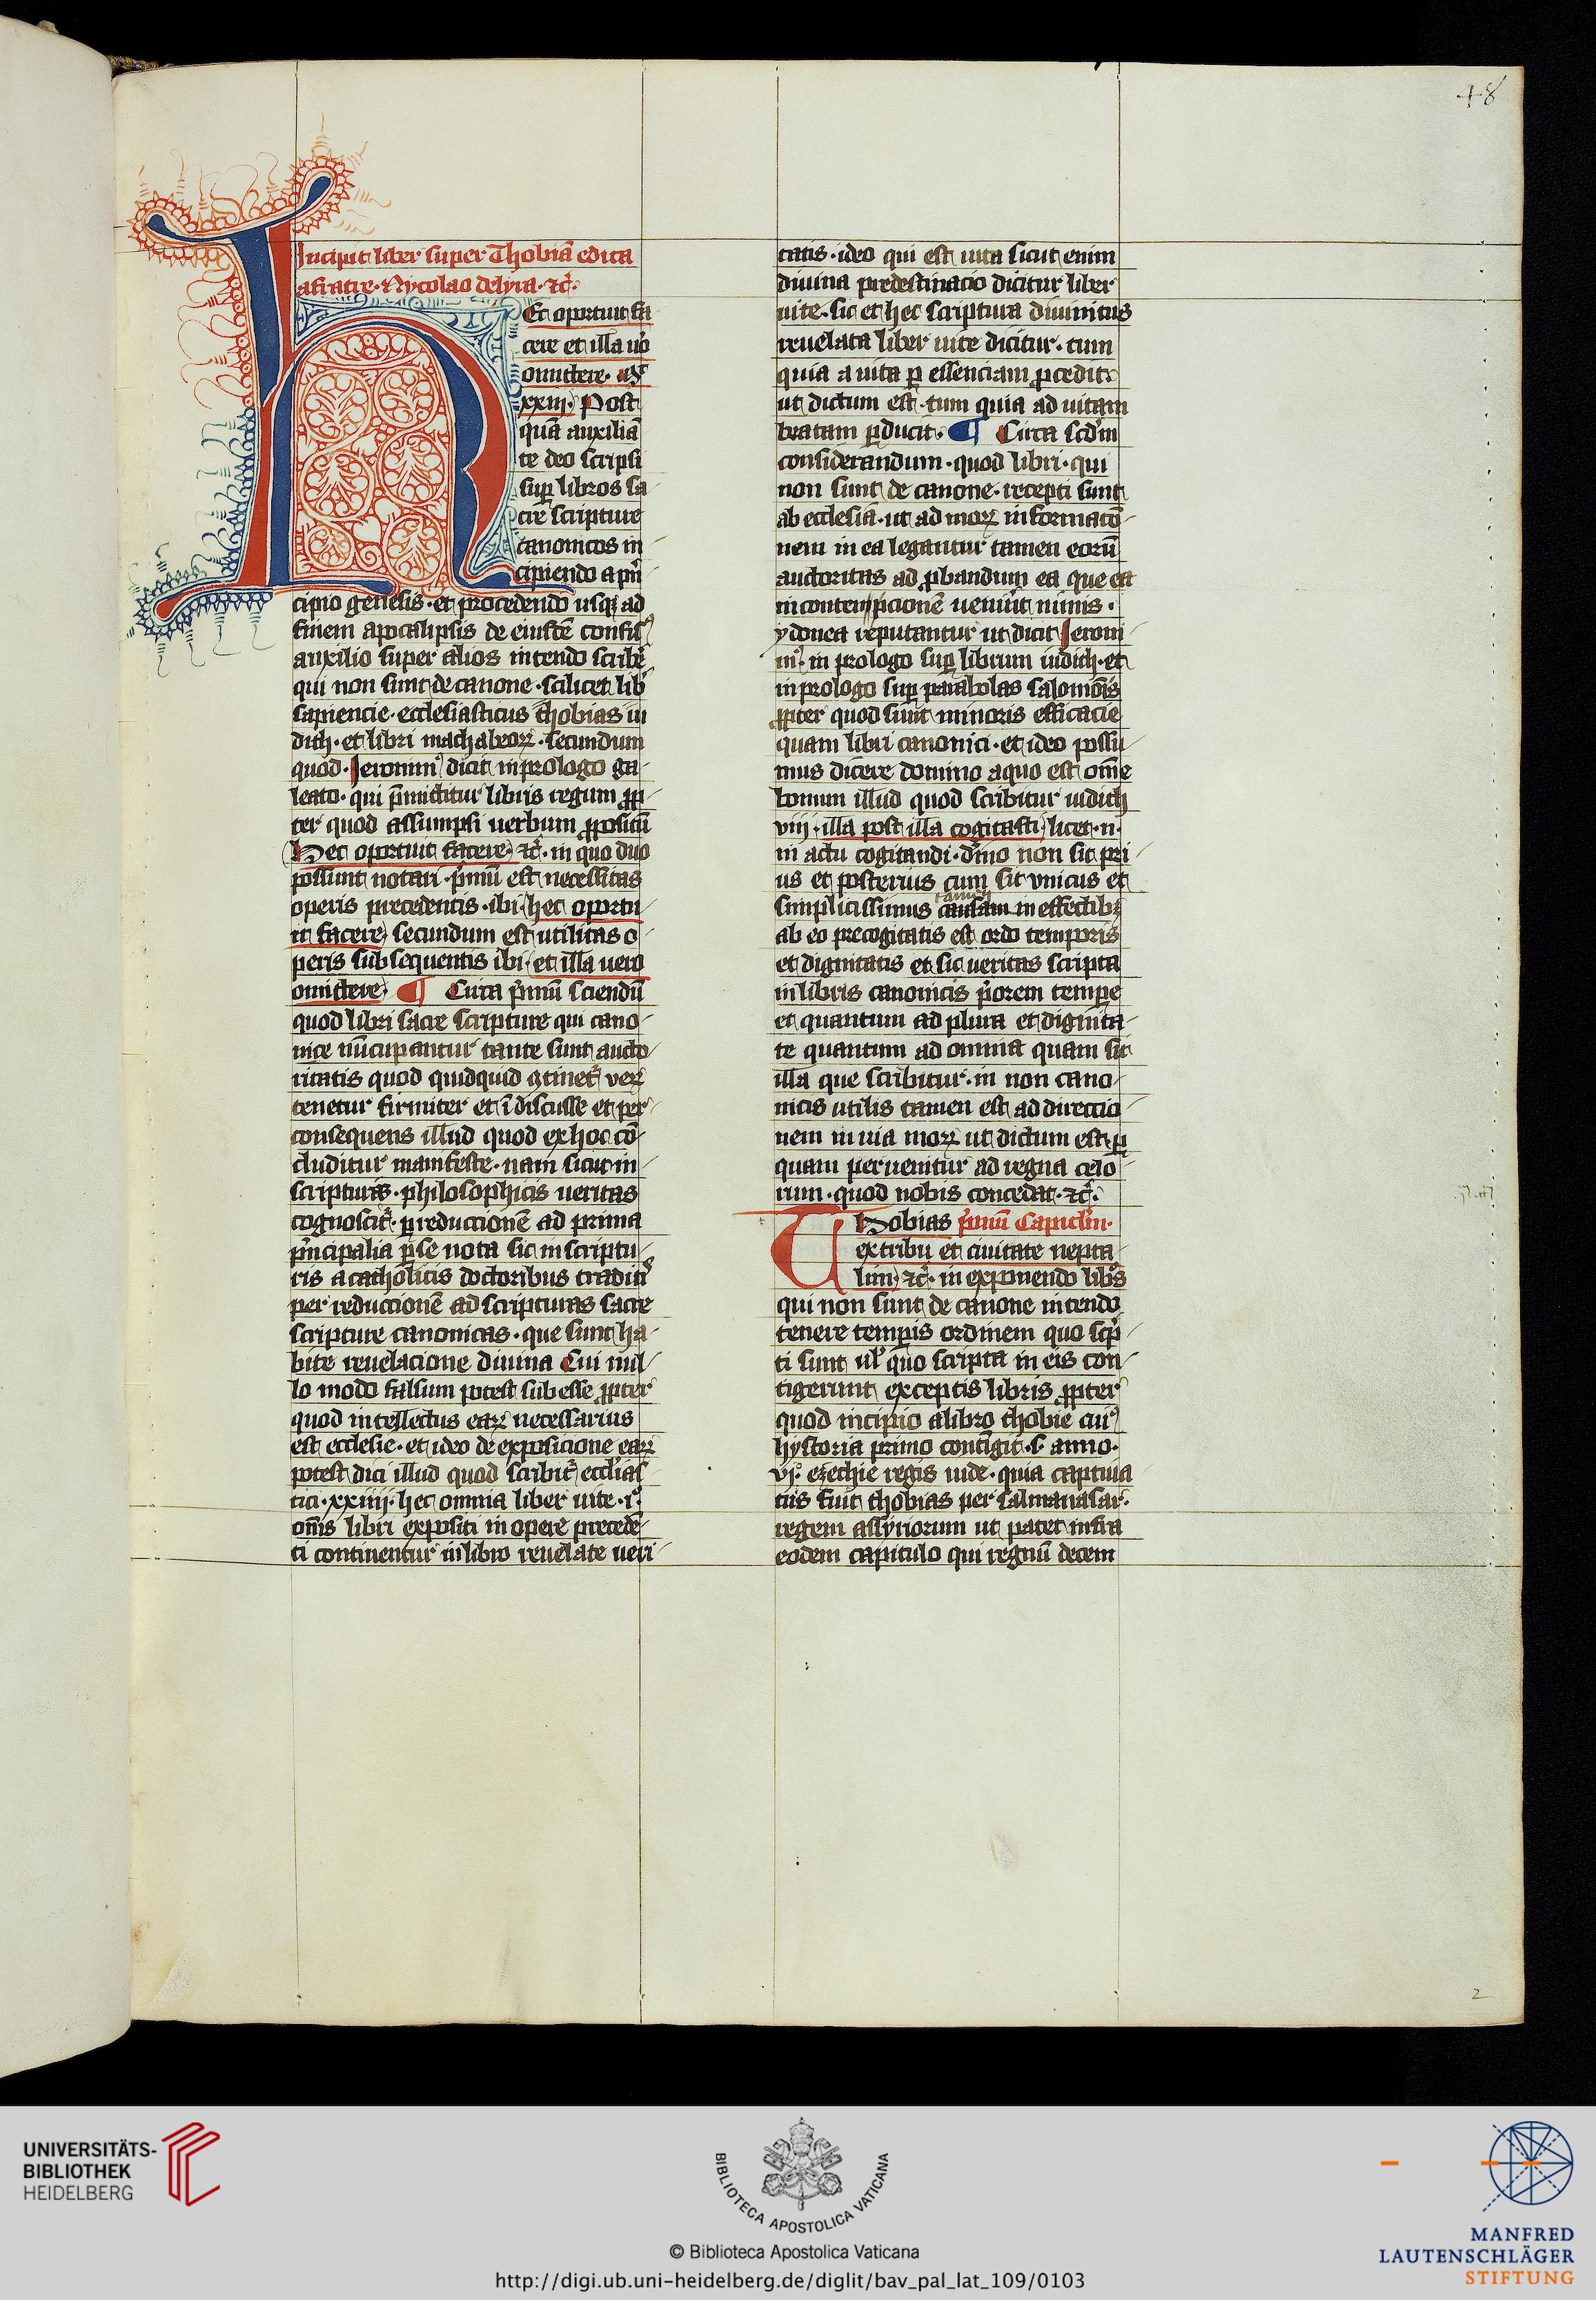 48
Incipit liber super Thobiā edita
a fratre · Nycolao de lyra · ⁊c̄ ·
H Ec oportuit fa
cere et illa uo
omittere · mͭ
xxiij · Post
quā auxilia
te deo scripsi
suꝑ libros sa
cre scripture
canonicos in
cipiendo a prī
cipio genesis · et procedendo usqꝫ ad
finem apocalipsis de eiusdē confisꝰ
auxilio super alios intendo scribe
qui non sunt de canone · scilicet lib̄
sapiencie · ecclesiasticus thobias iu
dith · et libri machabeoꝝ · Secundum
quod · Jeronimꝰ dicit in prologo ga
leato · qui p̄mittitur libris regum ꝓp
ter quod assumpsi uerbum ꝓpositū
Hec oportuit facere · ⁊c̄ · in quo duo
possunt notari · p̄mū est necessitas
operis precedentis · ibi · hec oportu
it facere secundum est utilitas o
peris subsequentis ibi · et illa uero
omittere · ¶ Circa p̄mū sciendū
quod libri sacre scripture qui cano
nice nūcupantur tante sunt aucto
ritatis quod quidquid ꝯtinet̄ veꝝ
tenetur firmiter et īdiscusse et per
consequens illud quod ex hoc cō
cluditur manifeste · nam sicut in
scripturis · philosophicis ueritas
cognoscit̄ · ꝑ reduccionē ad prima
p̄ncipalia ꝑ se nota sic in scriptu
ris a catholicis doctoribus traditis
per reduccionē ad scripturas sacre
scripture canonicas · que sunt ha
bite reuelacione diuina Cui nul
lo modo falsum potest subesse ꝓpter
quod intellectus eaꝝ necessarius
est ecclesie · et ideo de exposicione eaꝝ
potest dici illud quod scribit̄ ecclias
tici · xxiiij · hec omnia liber uite · i ·
om̄s libri expositi in opere precedē
ti continentur in libro reuelate ueri
tatis · ideo qui est uita sicut enim
diuina predestinacio dicitur liber
uite · sic et hec scriptura diuinitus
reuelata liber uite dicitur · tum
quia a uita ꝑ essenciam ꝓcedit
ut dictum est · tum quia ad uitam
beatam ꝑducit · ¶ Circa scd̄m
considerandum · quod libri · qui
non sunt de canone · recepti sunt
ab ecclesia · ut ad moꝝ informacō
nem in ea legantur tamen eorū
auctoritas ad ꝓbandum ea que
in contempcionē ueniūt minus ·
ydonea reputantur ut dicit Jeroni
mꝰ · in prologo suꝑ librum iudith · et
in prologo suꝑ parabolas salomōis
ꝓpter quod sunt minoris efficacie
quam libri canonici · et ideo possu
mus dicere domino a quo est om̄e
bonum illud quod scribitur iudith
viij · illa post illa cogitasti licet · n ·
in actu cogitandi · diuīo non sit pri
us et posterius cum sit vnicus et
simplicissimus causam tamen in effectibꝫ
ab eo precogitatis est ordo temporis
et dignitatis et sic ueritas scripta
in libris canonicis p̄orem tempore
et quantum ad plura et dignita
te quantum ad omnia quam sit
illa que scribitur · in non cano
nicis utilis tamen est ad direccio
nem in uia moꝝ ut dictum est · ꝑ
quam peruenitur ad regna celo
rum · quod nobis concedat · ⁊c̄ ·
Thobias p̄mū Capitl̄m ·
ex tribu et ciuitate nepta
lim ⁊c̄ · in exponendo libͦs
qui non sunt de canone intendo
tenere temporis ordinem quo scp̄
ti sunt ul̄ quo scripta in eis con
tigerunt exceptis libris ꝓpter
quod incipio a libro thobie cuiꝰ
hystoria primo contigit · s · anno ·
vjͦ · ezechie regis iude · quia captiua
tus fuit thobias per salmanasar ·
regem assyriorum ut patet infra
eodem capitulo qui regnū decem
2
UNIVERSITÄTS-
BIBLIOTHEK
HEIDELBERG
BIBLIOTECA APOSTOLICA VATICANA
© Biblioteca Apostolica Vaticana
http://digi.ub.uni-heidelberg.de/diglit/bav_pal_lat_109/0103
MANFRED
LAUTENSCHLÄGER
STIFTUNG